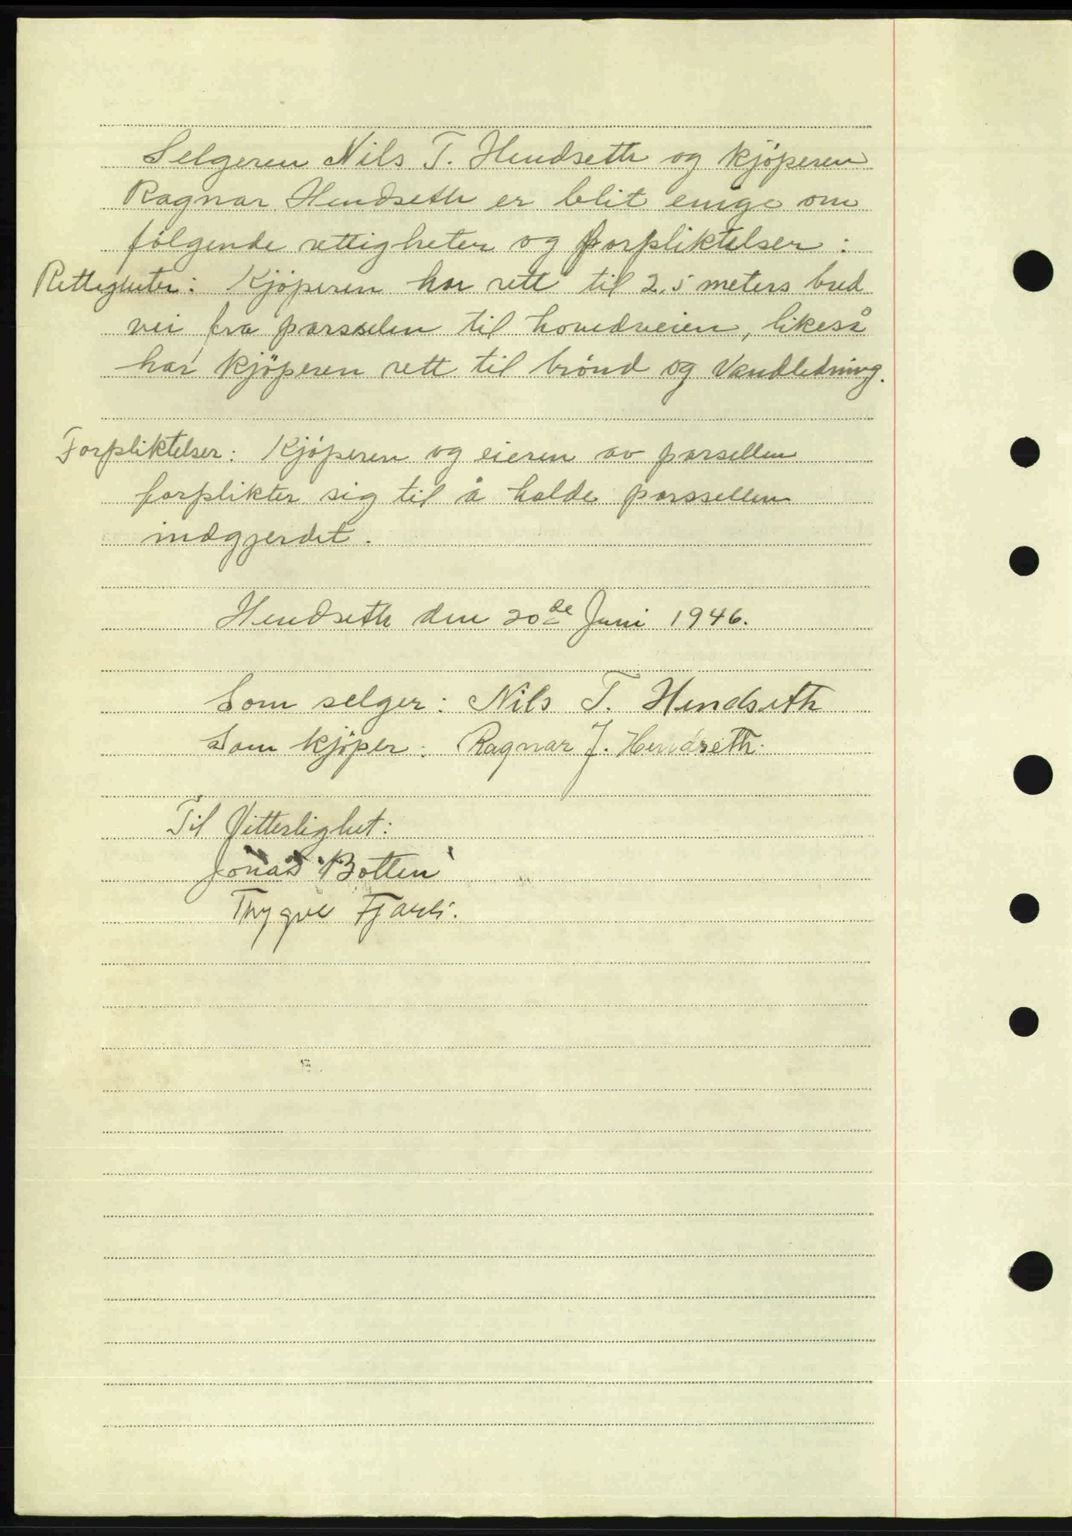 Selgeren Nils T. Hendseth og kjøperen
Ragnar Hendseth er blit enige om
følgende rettigheter og forpliktelser :
Rettigheter : Kjøperen har rett til 2,5 meters bred
vei fra parsselen til hovedveien, likeså
har kjøperen rett til brønd og Vandledning.
Forpliktelser : Kjøperen og eieren av parsellen
forplikter sig til å holde parssellen
indgjerdet .
Hendseth den 20de Juni 1946.
Som selger : Nils T. Hendseth
Som kjøper : Ragnar J. Hendseth.
Til Vitterlighet :
Jonas Botten
Thygve Fjærli.